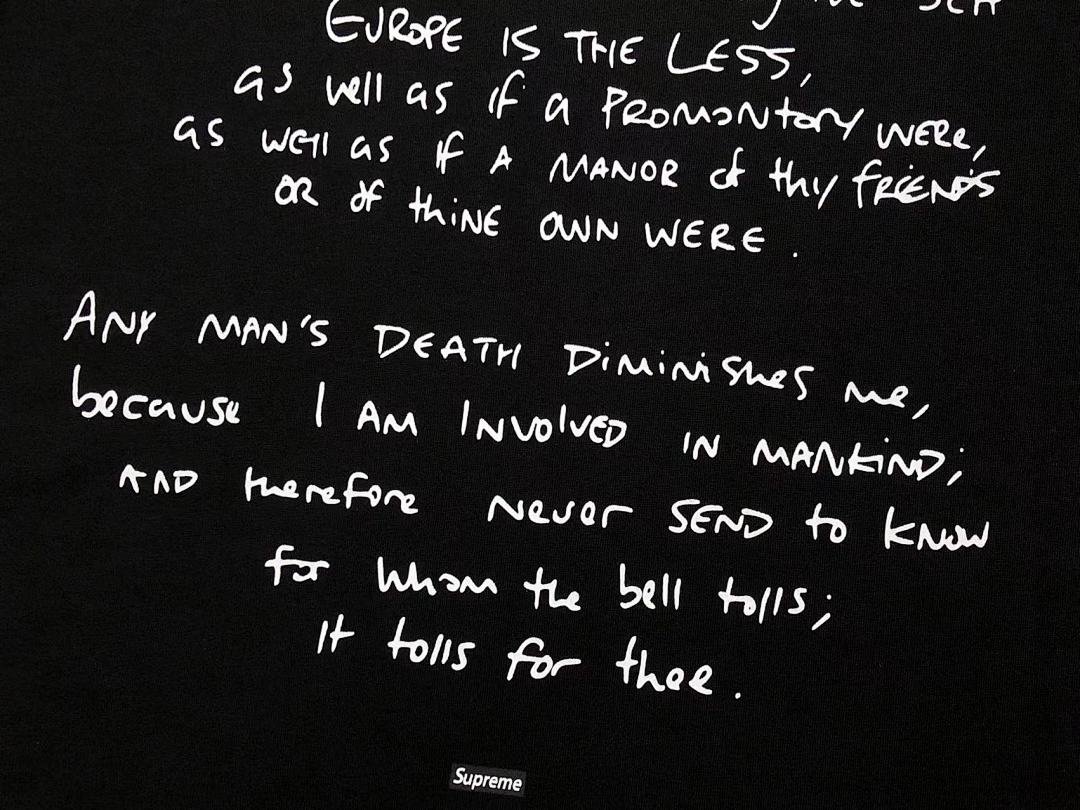 SEA
EUROPE IS THE LESS,
as well as if a PROMONTORY WERE,
as well as if A MANOR of thy FRIENDS
OR of thiNE OWN WERE.
ANY MAN'S DEATH DiMiNishes me,
because I AM INVOLVED IN MANKiND;
AND therefore never SEND to KNOW
for whom the bell tolls;
It tolls for thee.
Supreme